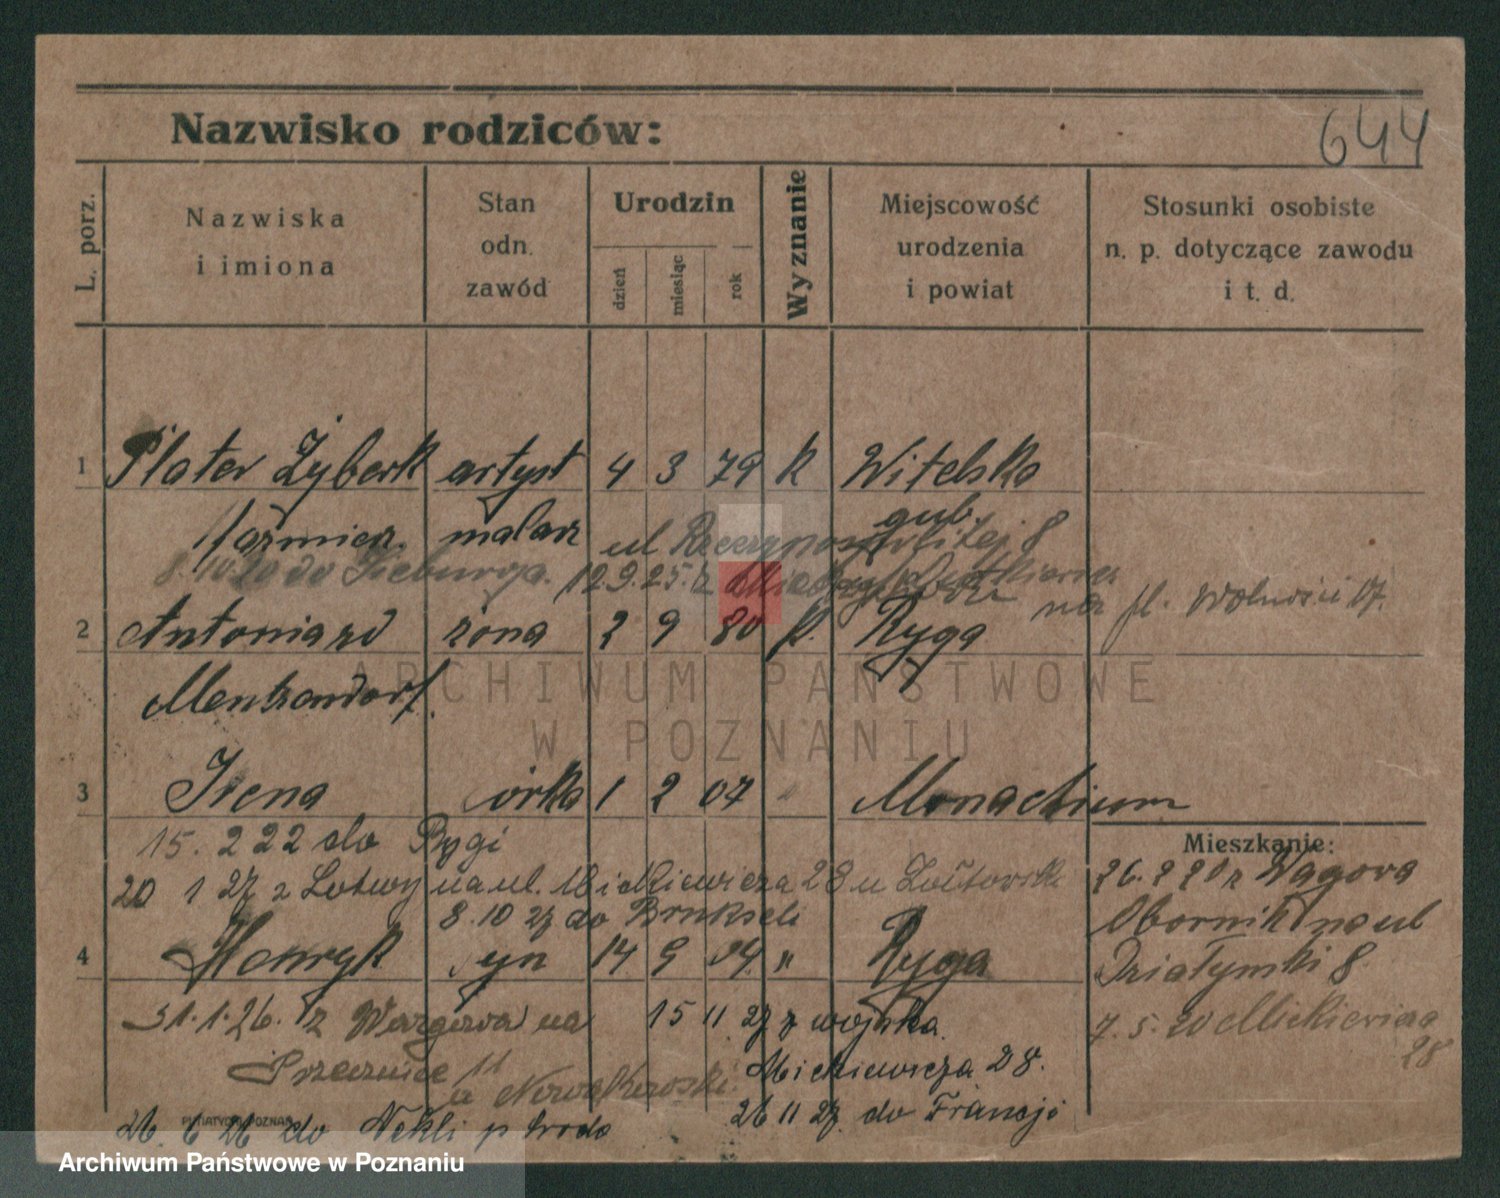 Nazwisko rodziców:
644
L. porz.
Nazwiska
i imiona
Stan
odn.
zawód
Urodzin
dzień
miesiąc
rok
Wyznanie
Miejscowość
urodzenia
i powiat
Stosunki osobiste
n. p. dotyczące zawodu
i t. d.
1 Plater Zyberk artyst 4 3 79 k Witebska
Kaźmierz malarz gub.
ul Rzeczypospolitej 8
8.10.20 do 12.9.25. z
na pl. Wolności 17.
2 Antonia zd żona 2 9 80 k. Ryga
Mentzendorf.
3 Irena córka 1 2 07 " Monachium
15. 2 22 do Rygi
20 1 27 z Łotwy na ul. Mickiewicza 28 u
8. 10 27 do Brukseli
4 Henryk syn 14 9 04 " Ryga
31.1.26. z na
15 11 27 z wojska
Mickiewicza 28.
11
u Nowakowski
26. 6 26 do Nekli p Środa
26 11 27. do Francji
Mieszkanie:
z Wągrowa
Obornik na ul
Działyński 8.
7. 5. 20 Mickiewicza
28
PUTIATYCKI POZNAŃ
ARCHIWUM PAŃSTWOWE
W POZNANIU
Archiwum Państwowe w Poznaniu